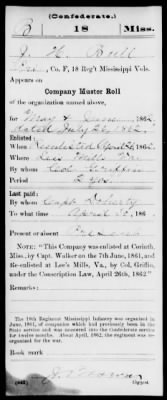 (Confederate.)
B 18 Miss.
Co. F, 18 Reg't Mississippi Vols.
Appears on
Company Muster Roll
of the organization named above,
for May & June, 186
dated July 2, 1862.
Enlisted:
When Reenlisted April 26, 1862.
Where Lees Mills Va.
By whom Col. Griffin
Period 2 yrs.
Last paid:
By whom Capt. Doherty
To what time April 30, 186
Present or absent Present
NOTE.—"This Company was enlisted at Corinth
Miss., by Capt. Walker on the 7th June, 1861, and
Re-enlisted at Lee's Mills, Va., by Col. Griffin,
under the Conscription Law, April 26th, 1862"
Remarks:
The 18th Regiment Mississippi Infantry was organized in
June, 1861, of companies which had previously been in the
State service and was mustered into the Confederate service
for twelve months. About April, 1862, the regiment was re-
organized for the war.
Book mark
(642)
Copyist.